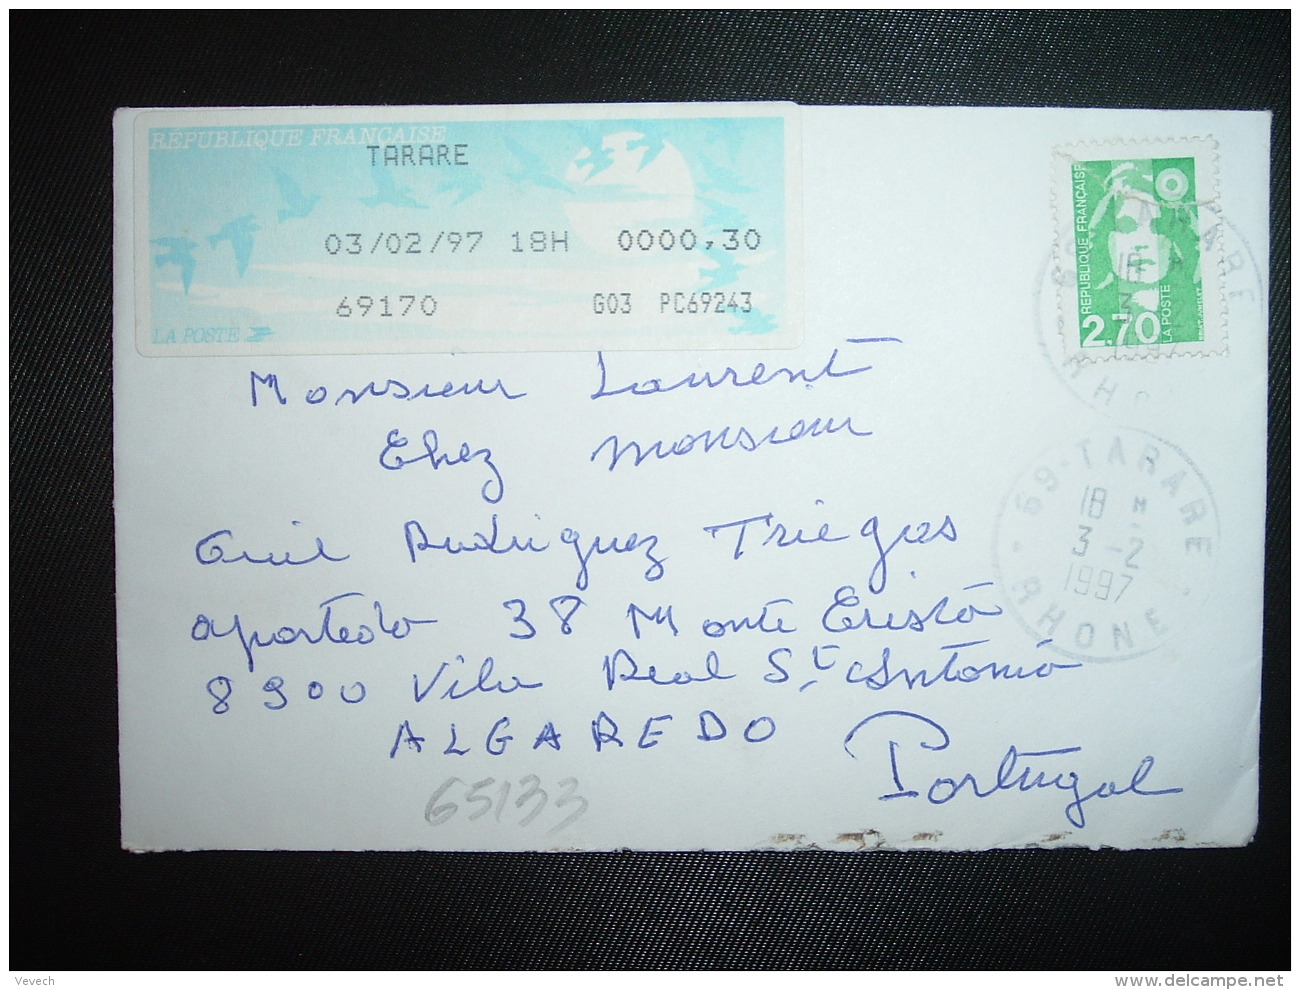 RÉPUBLIQUE FRANÇAISE
TARARE
03/02/97 18H 0000,30
69170 G03 PC69243
LA POSTE
RÉPUBLIQUE FRANÇAISE
2,70
LA POSTE
Monsieur Laurent
Chez Monsieur
Guil Rodriguez Triegas
apartedo 38 Monte Cristo
8900 Vila Real St Antonio
ALGAREDO
Portugal
69-TARARE
18 H
3 -2
1997
RHONE
65133
Vevech
www.delcampe.net